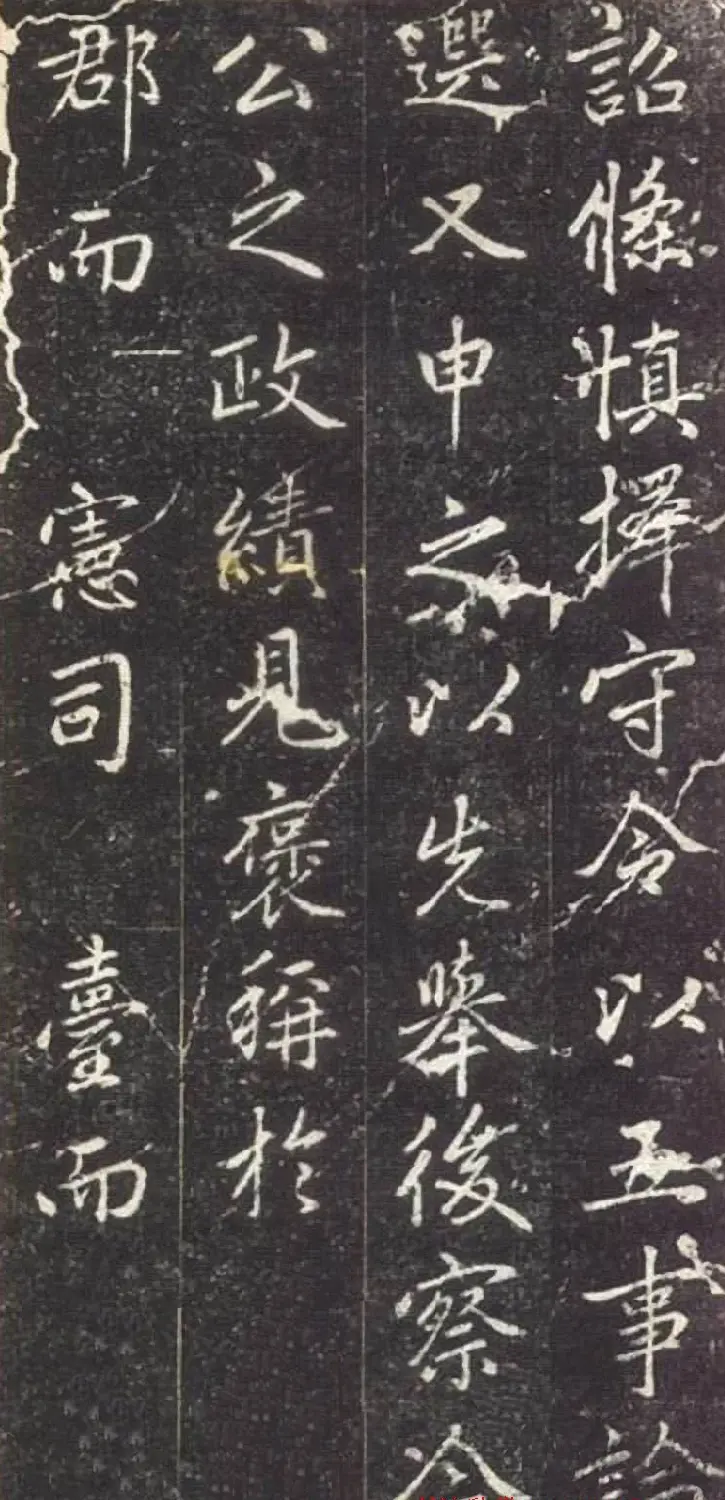 詔條慎擇守令以五事論
選又申之以先舉後察今
公之政績見褒稱於
郡而
憲司
臺而